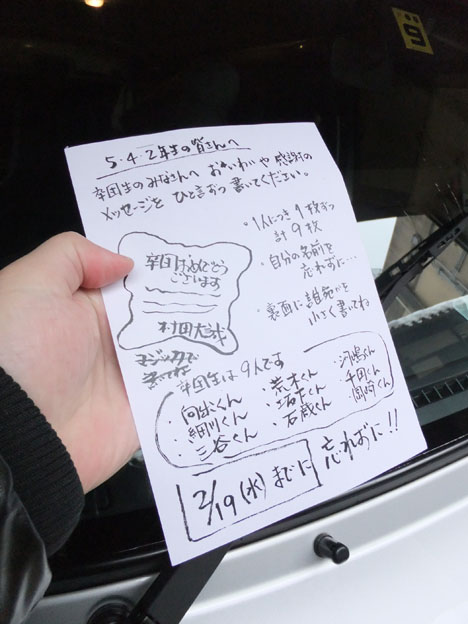 5・4・2年生の皆さんへ
卒団生のみなさんへ おいわいや 感謝の
メッセージを ひと言ずつ 書いてください。
・1人につき 1枚ずつ
計9枚
・自分の名前を
忘れずに…
・裏面に 誰宛かを
小さく書いてね
卒団おめでとう
ございます
村田大
マジックで
書いてね
卒団生は 9人です
・向出くん
・細川くん
・三谷くん
・荒木くん
・岩下くん
・石蔵くん
・河嶋くん
・千田くん
・岡崎くん
2/19(水)までに
忘れずに!!